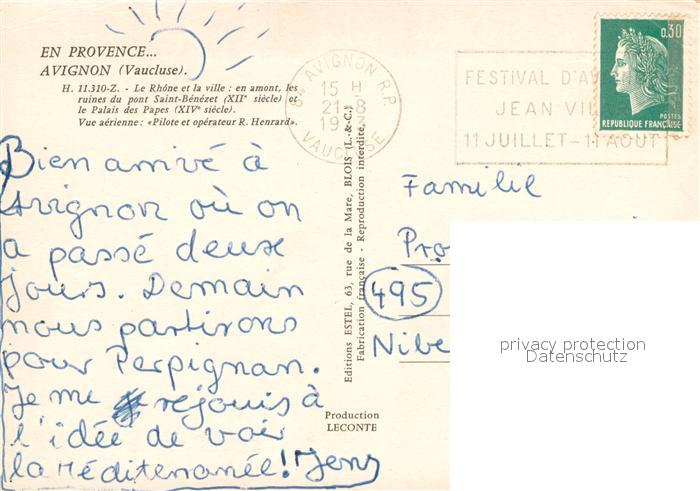 EN PROVENCE...
AVIGNON (Vaucluse).
H. 11.310-Z. - Le Rhône et la ville : en amont, les
ruines du pont Saint-Bénézet (XIIe siècle) et
le Palais des Papes (XIVe siècle).
Vue aérienne: «Pilote et opérateur R. Henrard».
Bien arrivé à
Avignon où on
a passé deuse
jours. Demain
nous partirons
pour Perpignan.
Je me rejouis à
l'idée de voir
la Méditenanée! Jens
Editions ESTEL, 63, rue de la Mare, BLOIS (L.-&-C.)
Fabrication française - Reproduction interdite.
Production
LECONTE
AVIGNON R.P.
15 H
21-8
19
VAUCLUSE
FESTIVAL D'AV
JEAN VIL
11 JUILLET-11 AOUT
0,30
POSTES
REPUBLIQUE FRANÇAISE
Familie
Pro
495
Nibe
privacy protection
Datenschutz